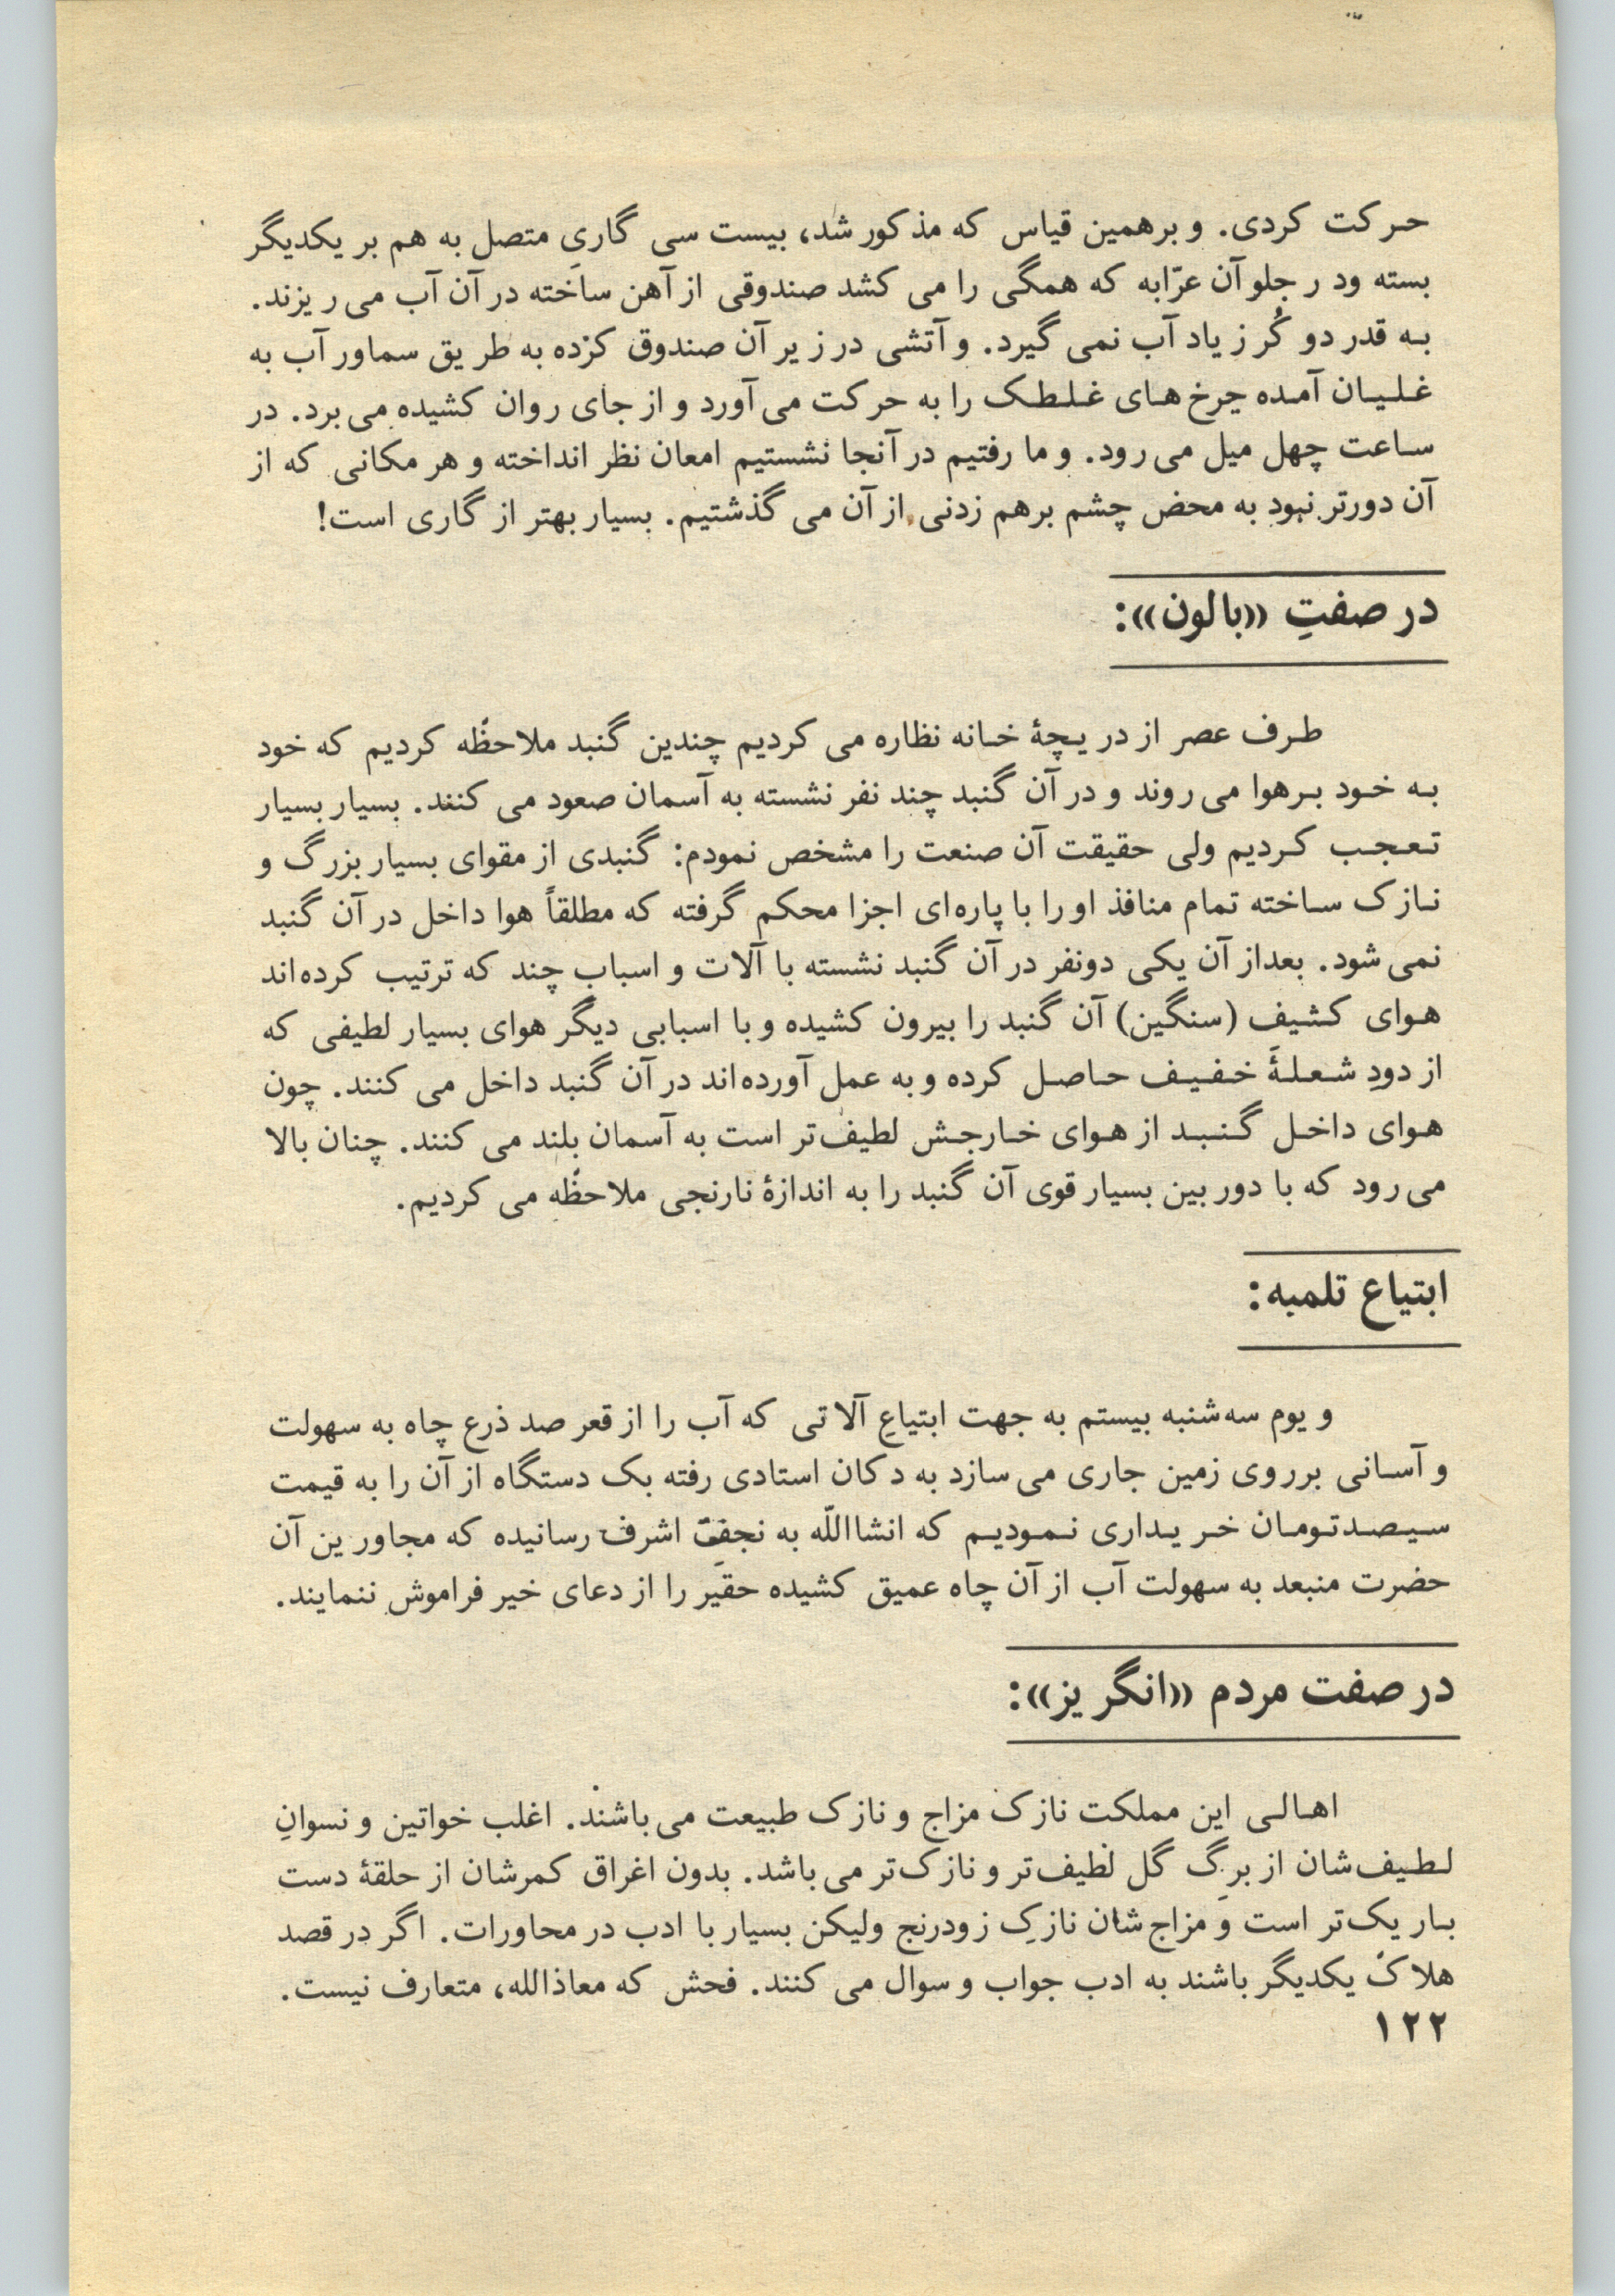 حرکت کردی. و برهمین قیاس که مذکور شد، بیست سی گاریِ متصل به هم بر یکدیگر
بسته ود ر جلو آن عرّابه که همگی را می کشد صندوقی از آهن ساخته در آن آب می ریزند.
به قدر دو کُر زیاد آب نمی گیرد. و آتشی در زیر آن صندوق کرده به طریق سماور آب به
غلیان آمده چرخ های غلطک را به حرکت می آورد و از جای روان کشیده می برد. در
ساعت چهل میل می رود. و ما رفتیم در آنجا نشستیم امعان نظر انداخته و هر مکانی که از
آن دورتر نبود به محض چشم برهم زدنی از آن می گذشتیم. بسیار بهتر از گاری است!
در صفتِ «بالون»:
طرف عصر از دریچهٔ خانه نظاره می کردیم چندین گنبد ملاحظه کردیم که خود
به خود برهوا می روند و در آن گنبد چند نفر نشسته به آسمان صعود می کنند. بسیار بسیار
تعجب کردیم ولی حقیقت آن صنعت را مشخص نمودم: گنبدی از مقوای بسیار بزرگ و
نازک ساخته تمام منافذ او را با پاره ای اجزا محکم گرفته که مطلقاً هوا داخل در آن گنبد
نمی شود. بعداز آن یکی دونفر در آن گنبد نشسته با آلات و اسبابِ چند که ترتیب کرده اند
هوای کثیف (سنگین) آن گنبد را بیرون کشیده و با اسبابی دیگر هوای بسیار لطیفی که
از دودِ شعلهٔ خفیف حاصل کرده و به عمل آورده اند در آن گنبد داخل می کنند. چون
هوای داخل گنبد از هوای خارجش لطیف تر است به آسمان بلند می کنند. چنان بالا
می رود که با دوربین بسیار قوی آن گنبد را به اندازهٔ نارنجی ملاحظه می کردیم.
ابتیاع تلمبه:
و یوم سه شنبه بیستم به جهت ابتیاعِ آلاتی که آب را از قعر صد ذرع چاه به سهولت
و آسانی برروی زمین جاری می سازد به دکان استادی رفته یک دستگاه از آن را به قیمت
سیصدتومان خریداری نمودیم که انشااللّه به نجف اشرف رسانیده که مجاورین آن
حضرت منبعد به سهولت آب از آن چاه عمیق کشیده حقیر را از دعای خیر فراموش ننمایند.
در صفت مردم «انگریز»:
اهالی این مملکت نازک مزاج و نازک طبیعت می باشند. اغلب خواتین و نسوانِ
لطیف شان از برگ گل لطیف تر و نازک تر می باشد. بدون اغراق کمرشان از حلقهٔ دست
باریک تر است و مزاج شان نازکِ زودرنج ولیکن بسیار با ادب در محاورات. اگر در قصد
هلاک یکدیگر باشند به ادب جواب و سوال می کنند. فحش که معاذالله، متعارف نیست.
۱۲۲